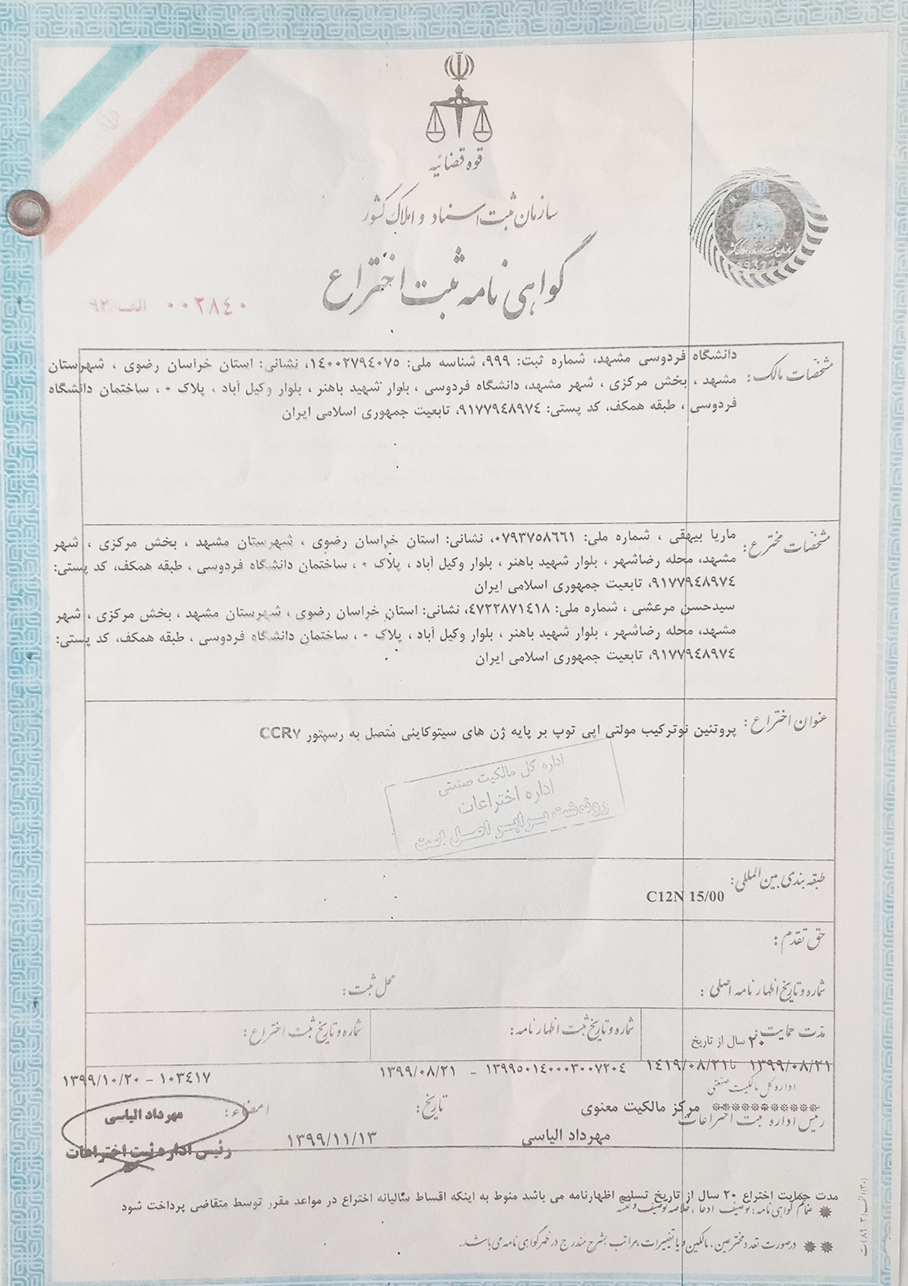 قوه قضائیه
سازمان ثبت اسناد و املاک کشور
گواهی نامه ثبت اختراع
۰۰۲۸۴۰ الف/۹۲
مشخصات مالک:
دانشگاه فردوسی مشهد، شماره ثبت: ۹۹۹، شناسه ملی: ۱۴۰۰۲۷۹۴۰۷۵، نشانی: استان خراسان رضوی ، شهرستان
مشهد ، بخش مرکزی ، شهر مشهد، دانشگاه فردوسی ، بلوار شهید باهنر ، بلوار وکیل آباد ، پلاک ۰ ، ساختمان دانشگاه
فردوسی ، طبقه همکف، کد پستی: ۹۱۷۷۹۴۸۹۷۴، تابعیت جمهوری اسلامی ایران
مشخصات مخترع:
ماریا بیهقی ، شماره ملی: ۰۷۹۳۷۵۸۶۶۱، نشانی: استان خراسان رضوی ، شهرستان مشهد ، بخش مرکزی ، شهر
مشهد، محله رضاشهر ، بلوار شهید باهنر ، بلوار وکیل آباد ، پلاک ۰ ، ساختمان دانشگاه فردوسی ، طبقه همکف، کد پستی:
۹۱۷۷۹۴۸۹۷۴، تابعیت جمهوری اسلامی ایران
سیدحسن مرعشی ، شماره ملی: ۴۷۲۲۸۷۱۴۱۸، نشانی: استان خراسان رضوی ، شهرستان مشهد ، بخش مرکزی ، شهر
مشهد، محله رضاشهر ، بلوار شهید باهنر ، بلوار وکیل آباد ، پلاک ۰ ، ساختمان دانشگاه فردوسی ، طبقه همکف، کد پستی:
۹۱۷۷۹۴۸۹۷۴، تابعیت جمهوری اسلامی ایران
عنوان اختراع: پروتئین نوترکیب مولتی اپی توپ بر پایه ژن های سیتوکاینی متصل به رسپتور CCR۷
اداره کل مالکیت صنعتی
اداره اختراعات
رونوشت برابر اصل است
طبقه بندی بین المللی:
C12N 15/00
حق تقدم:
شماره و تاریخ اظهارنامه اصلی: محل ثبت:
مدت حمایت: ۲۰ سال از تاریخ
۱۳۹۹/۰۸/۲۱ تا ۱۴۱۹/۰۸/۲۱
شماره و تاریخ ثبت اظهارنامه:
۱۳۹۹۵۰۱۴۰۰۰۳۰۰۷۲۰۴ - ۱۳۹۹/۰۸/۲۱
شماره و تاریخ ثبت اختراع:
۱۰۳۴۱۷ - ۱۳۹۹/۱۰/۲۰
اداره کل مالکیت صنعتی
********** مرکز مالکیت معنوی
رئیس اداره ثبت اختراعات
مهرداد الیاسی
تاریخ:
۱۳۹۹/۱۱/۱۳
امضاء:
مهرداد الیاسی
رئیس اداره ثبت اختراعات
مدت حمایت اختراع ۲۰ سال از تاریخ تسلیم اظهارنامه می باشد منوط به اینکه اقساط سالیانه اختراع در مواعد مقرر توسط متقاضی پرداخت شود
* ضمائم گواهی نامه: توصیف، ادعا، خلاصه توصیف و نقشه
** درصورت تعدد مخترعین، مالکین و یا تغییرات، مراتب بشرح مندرج در ظهر گواهی نامه می باشد.